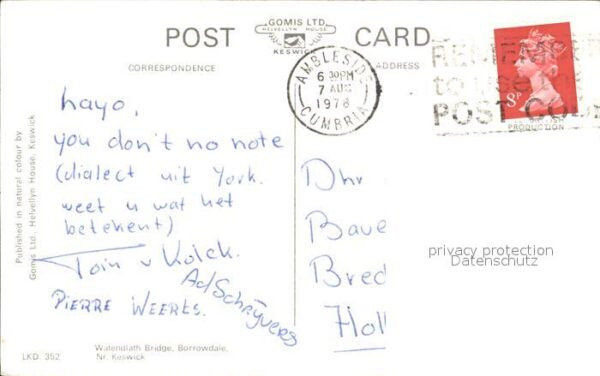 POST CARD
GOMIS LTD
HELVELLYN HOUSE
KESWICK
CORRESPONDENCE
ADDRESS
AMBLESIDE
6 30PM
7 AUG
1978
CUMBRIA
REMEMBER
to use
POST CODE
8P
BRITISH
PRODUCTION
hayo,
you don't no note
(dialect uit York.
weet u wat het
betekent)
Toin v Kolck.
Ad Schrijvers
PIERRE WEERTS.
Dhr
Bave
Bred
Holl
privacy protection
Datenschutz
Published in natural colour by
Gomis Ltd., Helvellyn House, Keswick
Watendlath Bridge, Borrowdale,
Nr. Keswick
LKD. 352